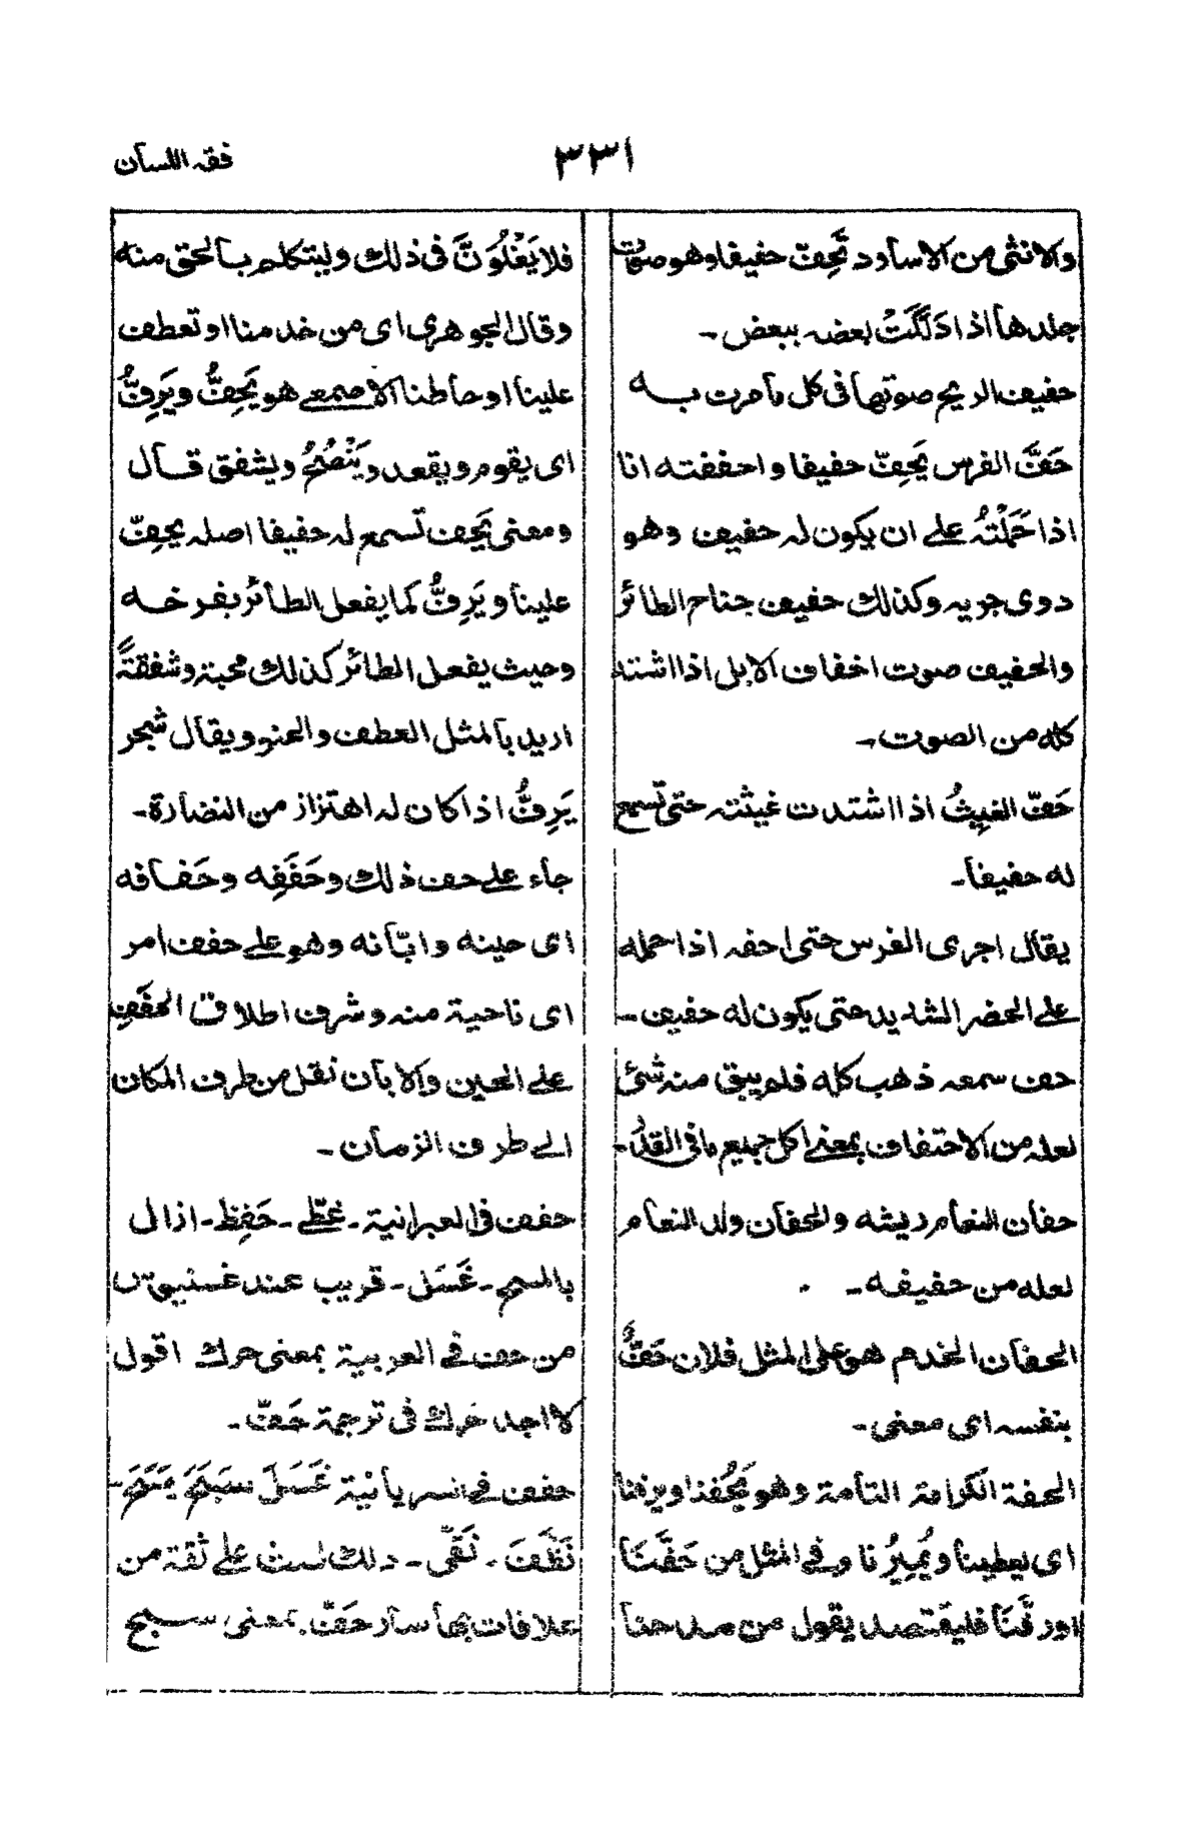 فقہ اللسان
٣٣١
والانثى من الاساود تَحِفّ حفيفا وهو صوت
جلدها اذا دَلَكَتْ بعضہ ببعض ۔
حفيف الريح صوتها فى كل ما مرت بہ
حَفَّ الفرس يَحِفّ حفيفا و احففتہ انا
اذا حَمَلْتُہ على ان يكون لہ حفيف وهو
دوى جريہ وكذلك حفيف جناح الطائر
والحفيف صوت اخفاف الابل اذا اشتد
كلہ من الصوت ۔
حَفّ الغيثُ اذا اشتدت غيثتہ حتى تسمع
لہ حفيفا ۔
يقال اجرى الفرس حتى احفہ اذا حملہ
على الحضر الشديد حتى يكون لہ حفيف ۔
حف سمعہ ذهب كلہ فلم يبق منہ شئ
لعلہ من الاحتفاف بمعنى اكل جميع ما فى القدر ۔
حفان النعام ريشہ والحفان ولد النعام
لعلہ من حفيفہ ۔
الحفان الخدم هو على المثل فلان حَفٌّ
بنفسہ اى معنى ۔
الحفة الكرامة التامة وهو يَحُفنا ويرفنا
اى يعطينا ويُمِيرُنا وفى المثل من حَفَّنَا
اورفَّنَا فليقتصد يقول من مدحنا
فلا يَغْلُوَنَّ فى ذلك وليتكلم بالحق منہ
وقال الجوهرى اى من خدمنا او تعطف
علينا او حاطنا الاصمعى هو يَحِفُّ ويَرِفُّ
اى يقوم ويقعد ويَنْصُحُ ويشفق قال
ومعنى يَحِف تسمع لہ حفيفا اصلہ يحِفّ
علينا ويَرِفُّ كما يفعل الطائر بفرخہ
وحيث يفعل الطائر كذلك محبة وشفقةً
اريد بالمثل العطف والحنو ويقال شجر
يَرِفُّ اذا كان لہ اهتزاز من النضارة ۔
جاء على حف ذلك وحَفَفِہ وحَفافہ
اى حينہ وابّانہ وهو على حفف امر
اى ناحية منہ وشرف اطلاق الحفَفِ
على الحين والابان نقل من طرف المكان
الى طرف الزمان ۔
حفف فى العبرانية ۔ غطّى ۔ حَفِظ ۔ ازال
بالمسح ۔ غَسَل ۔ قريب عند غسنيوس
من حف فى العربية بمعنى حرك اقول
لا اجد حرك فى ترجمة حَفّ ۔
حفف فى السريانية غَسَلَ سَبَحَ مَسَحَ ۔
نَظَّفَ ۔ نَقّى ۔ ذلك لست على ثقة من
علاقات بها سائر حَفّ بمعنى سبح